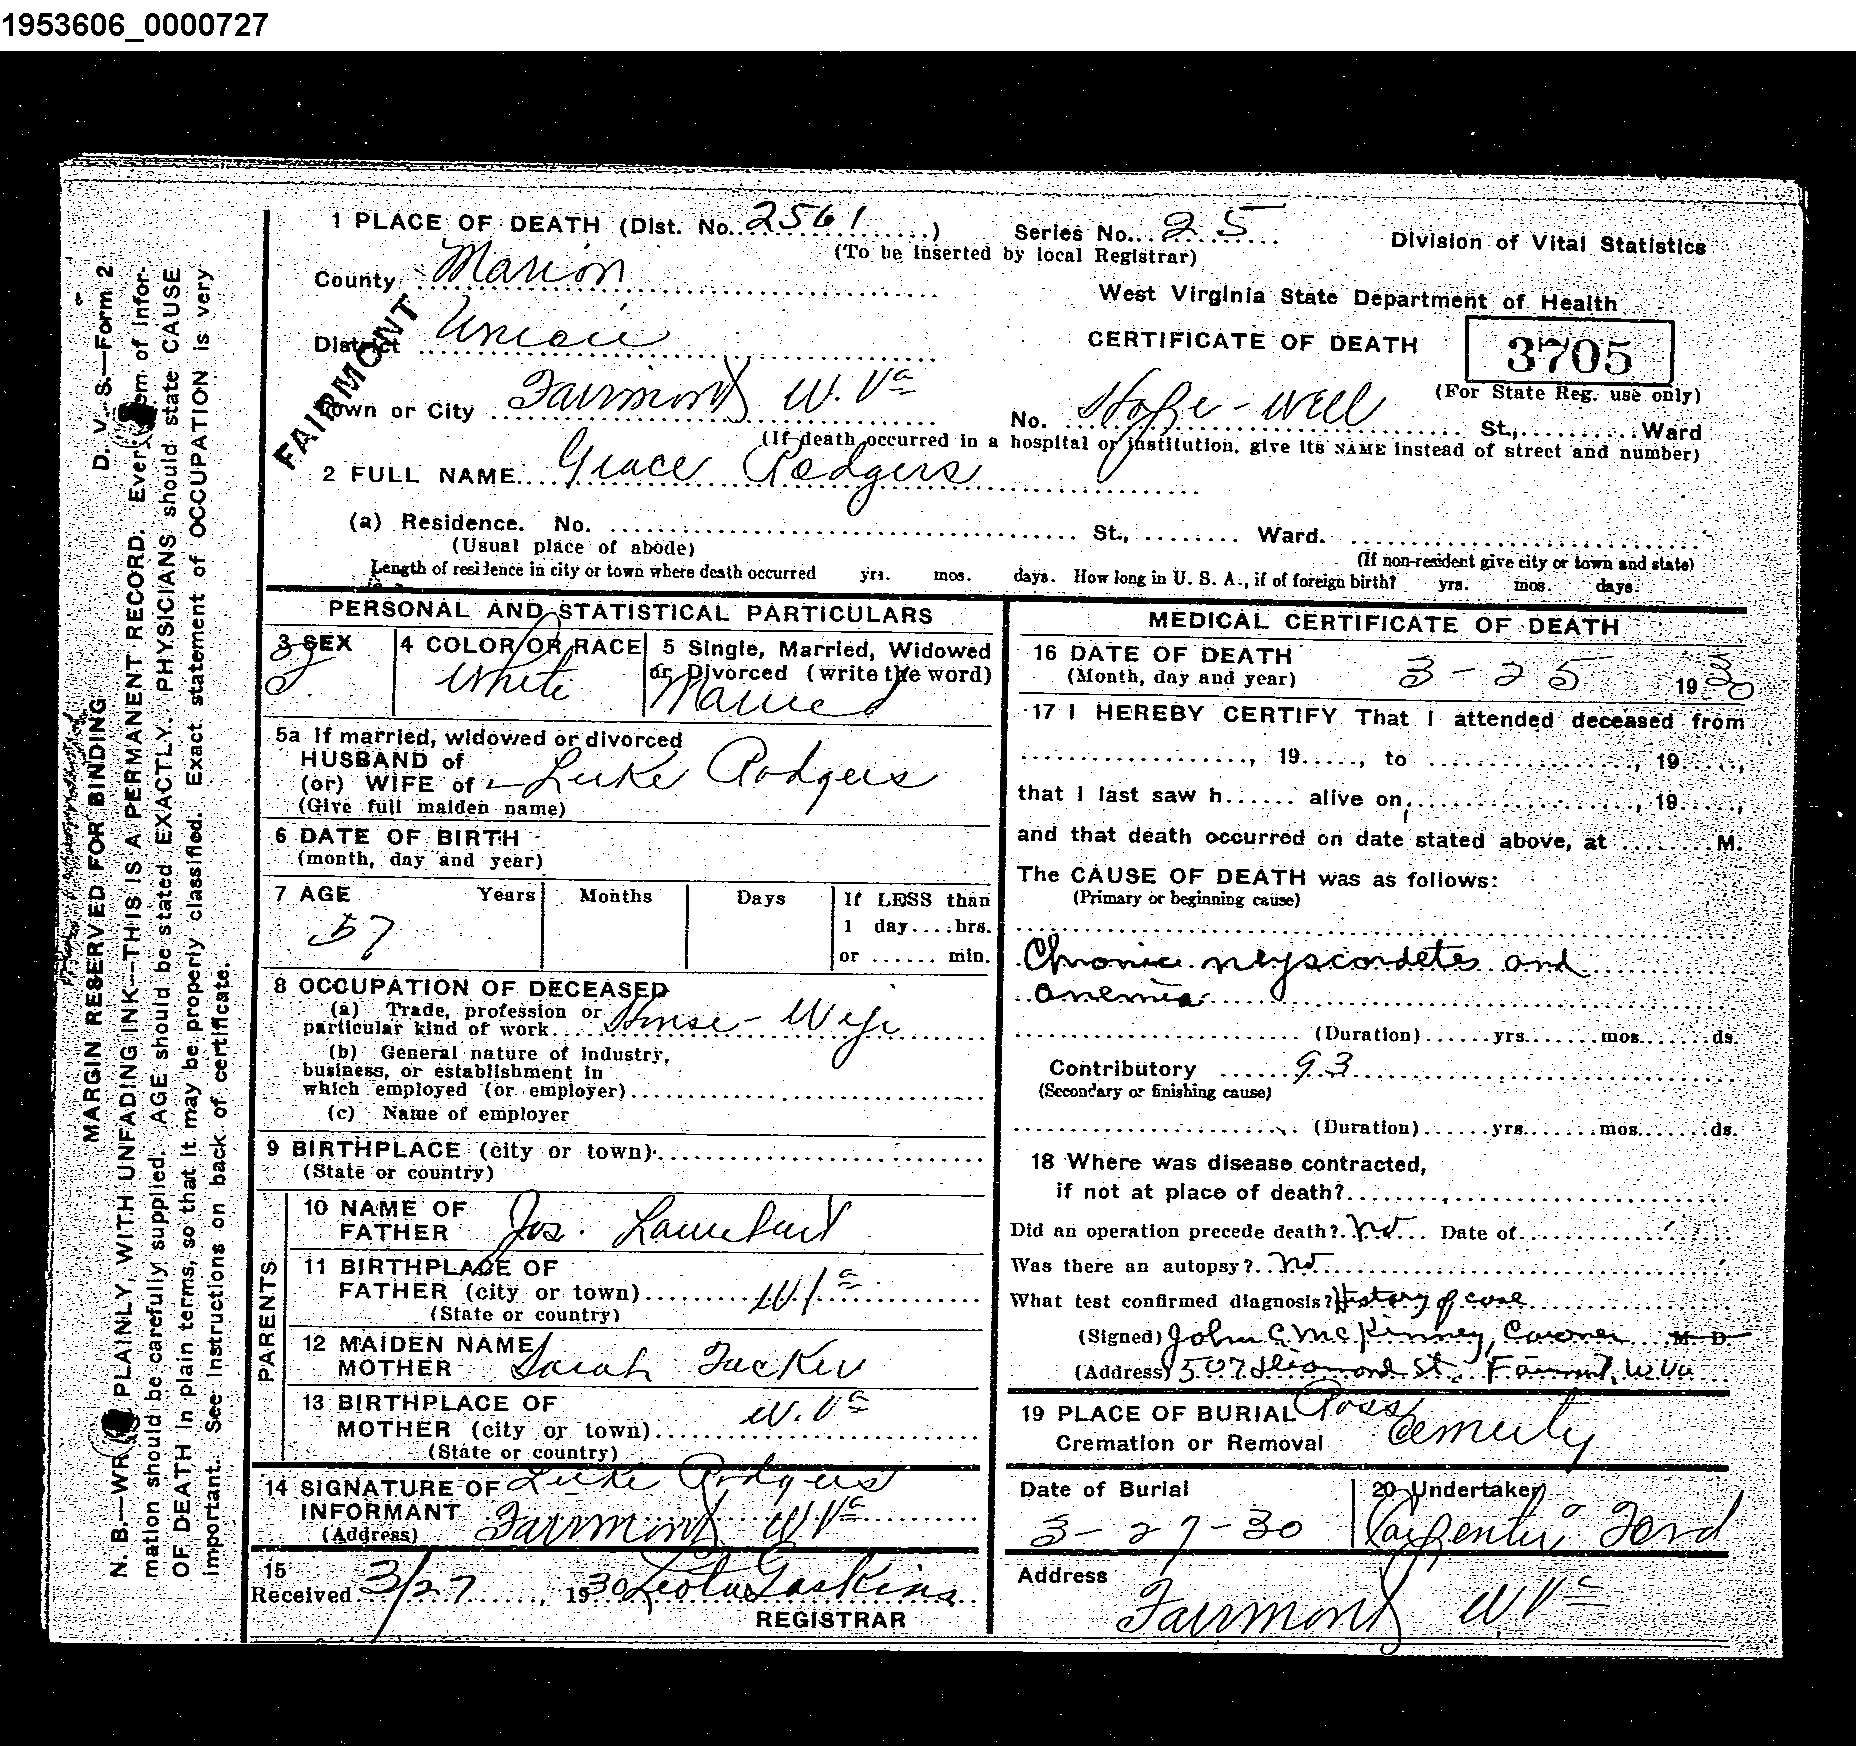 1953606_0000727
1 PLACE OF DEATH (Dist. No. 2561 ) Series No. 25
(To be inserted by local Registrar)
Division of Vital Statistics
County Marion
West Virginia State Department of Health
FAIRMONT
District Union
CERTIFICATE OF DEATH 3705
(For State Reg. use only)
Town or City Fairmont W. Va No. Hope-well St., Ward
(If death occurred in a hospital or institution, give its NAME instead of street and number)
2 FULL NAME Grace Rodgers
(a) Residence. No. St., Ward.
(Usual place of abode) (If non-resident give city or town and state)
Length of residence in city or town where death occurred yrs. mos. days. How long in U. S. A., if of foreign birth? yrs. mos. days.
PERSONAL AND STATISTICAL PARTICULARS
3 SEX 4 COLOR OR RACE 5 Single, Married, Widowed
or Divorced (write the word)
F. White Married
5a If married, widowed or divorced
HUSBAND of
(or) WIFE of Luke Rodgers
(Give full maiden name)
6 DATE OF BIRTH
(month, day and year)
7 AGE Years Months Days If LESS than
1 day....hrs.
57
or ...... min.
8 OCCUPATION OF DECEASED
(a) Trade, profession or
particular kind of work House-Wife
(b) General nature of industry,
business, or establishment in
which employed (or employer)
(c) Name of employer
9 BIRTHPLACE (city or town)
(State or country)
PARENTS
10 NAME OF
FATHER Jos.
11 BIRTHPLACE OF
FATHER (city or town) W Va
(State or country)
12 MAIDEN NAME
MOTHER Sarah Tucker
13 BIRTHPLACE OF
MOTHER (city or town) W. Va
(State or country)
14 SIGNATURE OF Luke Rodgers
INFORMANT
(Address) Fairmont W Va
15
Received 3/27, 1930 Leota Gaskins
REGISTRAR
MEDICAL CERTIFICATE OF DEATH
16 DATE OF DEATH
(Month, day and year) 3-25 1930
17 I HEREBY CERTIFY That I attended deceased from
, 19....., to , 19.....,
that I last saw h...... alive on, , 19.....,
and that death occurred on date stated above, at ........M.
The CAUSE OF DEATH was as follows:
(Primary or beginning cause)
Chronic and
anemia
(Duration)......yrs.......mos.......ds.
Contributory 93
(Secondary or finishing cause)
(Duration)......yrs.......mos.......ds.
18 Where was disease contracted,
if not at place of death?
Did an operation precede death? No Date of
Was there an autopsy? No
What test confirmed diagnosis? History of case
(Signed) John C. McKinney, Coroner M. D.
(Address) 507 Diamond St. Fairmont, W Va
19 PLACE OF BURIAL Ross
Cremation or Removal Cemetery
Date of Burial 20 Undertaker
3-27-30 Carpenter Ford
Address
Fairmont W. Va
D. V. S.—Form 2
MARGIN RESERVED FOR BINDING
N. B.—WRITE PLAINLY, WITH UNFADING INK—THIS IS A PERMANENT RECORD. Every item of infor-
mation should be carefully supplied. AGE should be stated EXACTLY. PHYSICIANS should state CAUSE
OF DEATH in plain terms, so that it may be properly classified. Exact statement of OCCUPATION is very
important. See instructions on back of certificate.